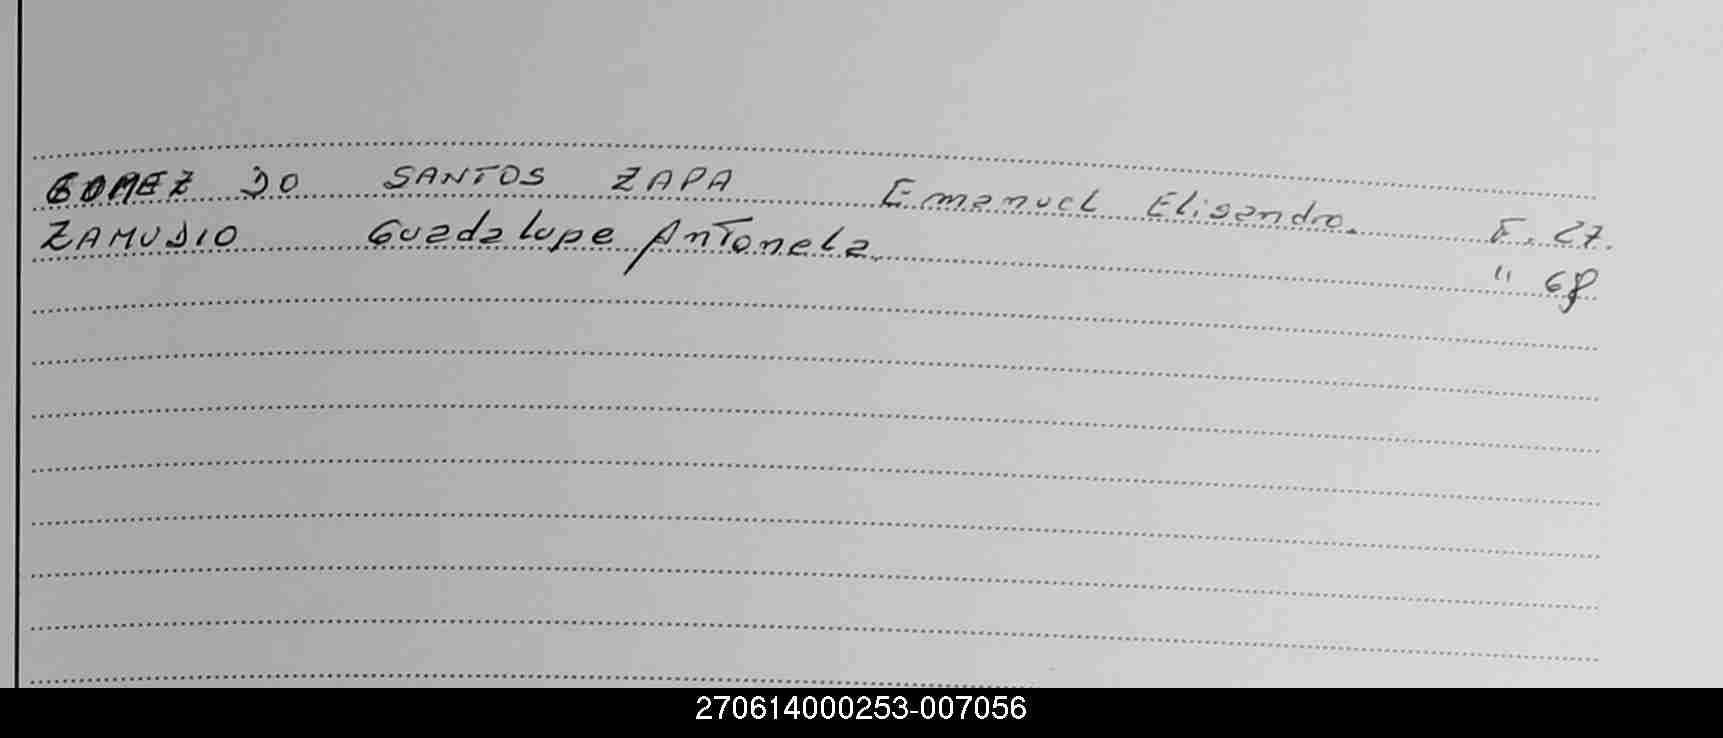 GOMEZ DO SANTOS ZAPA Emanuel Elisandro. F. 27.
ZAMUDIO Guadalupe Antonela. " 68
270614000253-007056